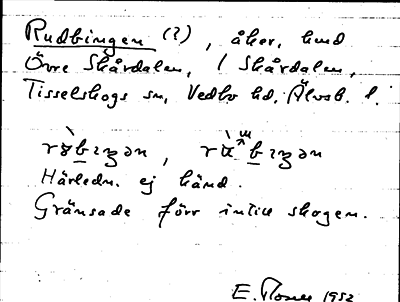 Rudbingen (?), åker, hmd
Övre Skårdalen, 1 Skårdalen,
Tisselskogs sn, Vedbo hd, Älvsb. l.
Härledn. ej känd.
Gränsade förr intill skogen.
E. 1952